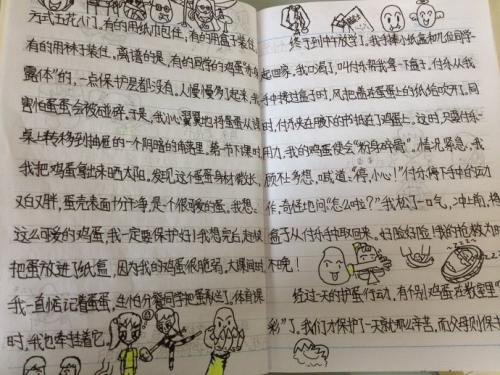 方式五花八门,有的用纸巾包住,有的用盒子装住,
有的用杯子装住,离谱的是,有的同学的鸡蛋“赤身
露体”的,一点保护层都没有,人慢慢多起来,我
害怕蛋蛋会被碰碎。于是,我小心翼翼地将蛋从课
桌上转移到抽屉的一个阴暗的角落里。第一节下课时,
我把鸡蛋拿出来晒太阳,发现这个蛋蛋身材微长,
又白又胖,蛋壳表面十分干净,是个很可爱的蛋,我想:
这么可爱的鸡蛋,我一定要保护好!我想完后,赶快
把蛋放进了纸盒,因为我的鸡蛋很脆弱,大课间时,
我一直惦记着蛋蛋,生怕分餐同学把蛋
体育课
时,我也牵挂着它。
终于到中午放学了,我手捧小纸盒和几位同学一
起回家,我口渴了,叫付乐帮我拿一下盒子,付乐从我
手中接过盒子时,风把盖在蛋蛋上的纸给吹开了,同
时,付乐夹在腋下的书抵在了鸡蛋上,这时,只要付乐一
用力,我的鸡蛋便会“粉身碎骨”。情况紧急,我
顾不上多想,喊道:“停,小心!”付乐停下手中的动
作,奇怪地问:“怎么啦?”我松了一口气,冲上前,将
盒子从付乐手中取回来,好险好险!我的抢救为时
不晚!
经过一天的护蛋行动,有个别鸡蛋在教室里“
彩”了,我们才保护了一天就那么辛苦,而父母则保护